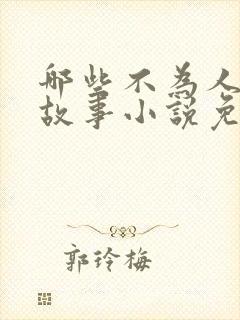 那些不为人
故事小說免
郭玲梅